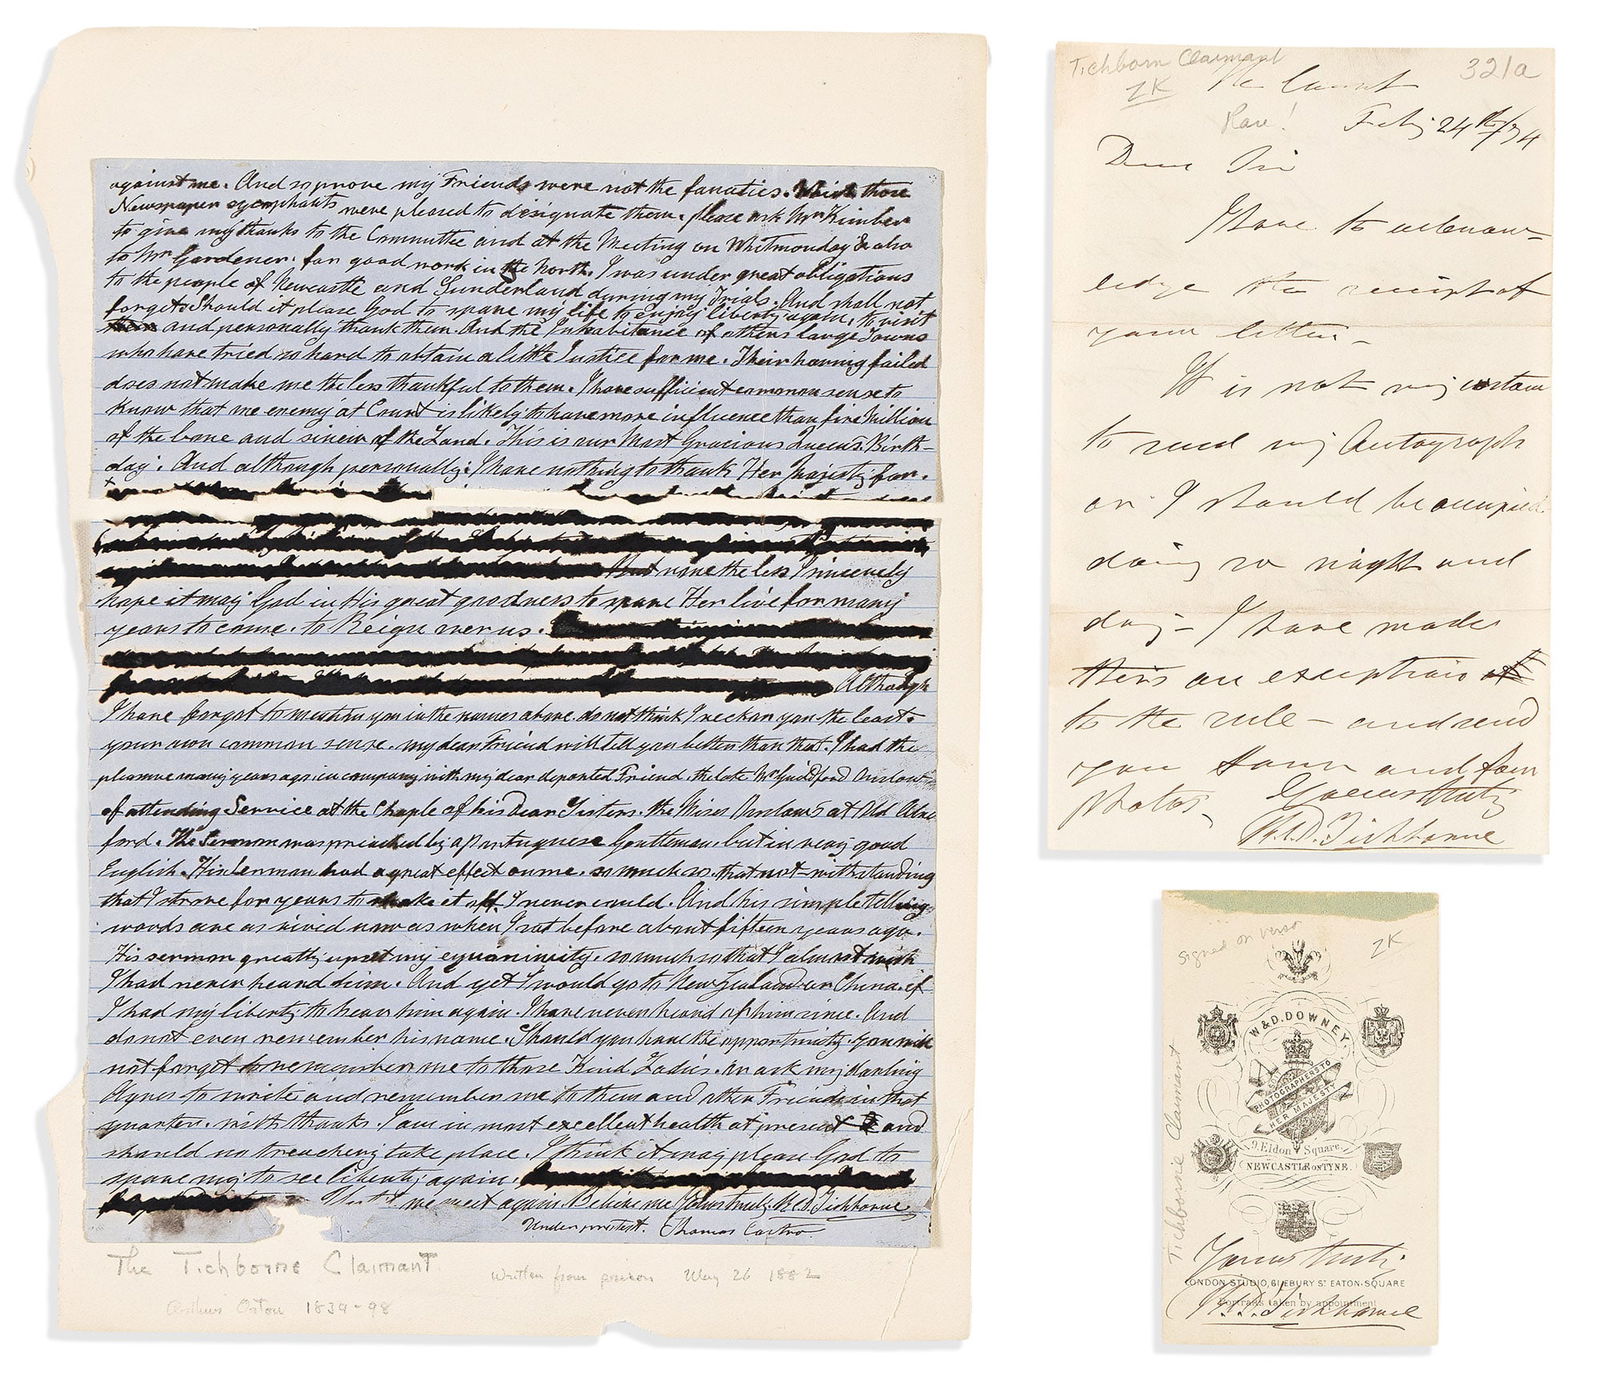 against me. And so prove my Friends were not the fanatics. Which those
Newspaper sycophants were pleased to designate them. please ask Mr Kimber
to give my thanks to the Committee and at the Meeting on Whitmonday & also
to Mr Gardener. for good work in the North. I was under great obligations
to the people of Newcastle and Sunderland during my Trials. And shall not
forget. Should it please God to spare my life to enjoy liberty again, to visit
them and personally thank them. And the Inhabitance of others large Towns
who have tried so hard to obtain a little Justice for me. Their having failed
does not make me the less thankful to them. I have sufficient common sense to
know that me enemy at Court is likely to have more influence than five Million
of the bone and sinew of the Land. This is our Most Gracious Queens Birth-
day. And although personally. I have nothing to thank Her Majesty for.
But none the less I sincerely
hope it may God in His great goodness to spare Her live for many
years to come. to Reign over us.
Although
I have forgot to mention you in the names above. do not think I reckon you the least.
your own common sense. my dear Friend will tell you better than that. I had the
pleasure many years ago. in company with my dear departed Friend. the late Mr Guildford Onslow
of attending Service at the Chaple of his Dear Sisters. the Mises Onslows at Old Alres
ford. The Sermon was preached by a Portuguese Gentleman. but in very good
English. Hinlerman had a great effect on me. so much so. that not-withstanding
that I strove for years to shake it off. I never could. And his simple telling
words are as vived now as when I sat before about fifteen years ago.
His sermon greatly upset my equaninity. so much so that I almost wish
I had never heard him. And yet I would go to New Zealand or China. if
I had my liberty to hear him again. I have never heard of him since. And
do not even remember his name. Should you have the opportunity. you will
not forget to remember me to those Kind Ladies. or ask my darling
Agnes to write and remember me to them and other Friends in that
quarter. with thanks. I am in most excellent health at present and
should no treaching take place. I think it may please God to
spare my to see liberty again.
me meet again. Believe me Yours truly. R.C.D. Tichborne
Under protest. Thomas Castro
The Tichborne Claimant
Written from prison May 26 1882
Arthur Orton 1834-98
Tichborn Claimant
321a
ZK
The Court
Rare!
Feby 24th/74
Dear Sir
I have to acknow-
ledge the receipt of
your letter-
It is not my custom
to send my Autograph
or I should be occupied
doing so night and
day- I have made
this an exception
to the rule- and send
you same and four
photos-
Yours truly
R.C.D. Tichborne
Signed on verso
ZK
W. & D. DOWNEY
PHOTOGRAPHERS TO
HER MAJESTY
9 Eldon Square,
NEWCASTLE ON TYNE.
Tichborne Claimant
Yours truly
LONDON STUDIO, 61, EBURY ST EATON SQUARE
Portraits taken by appointment
R.C.D. Tichborne